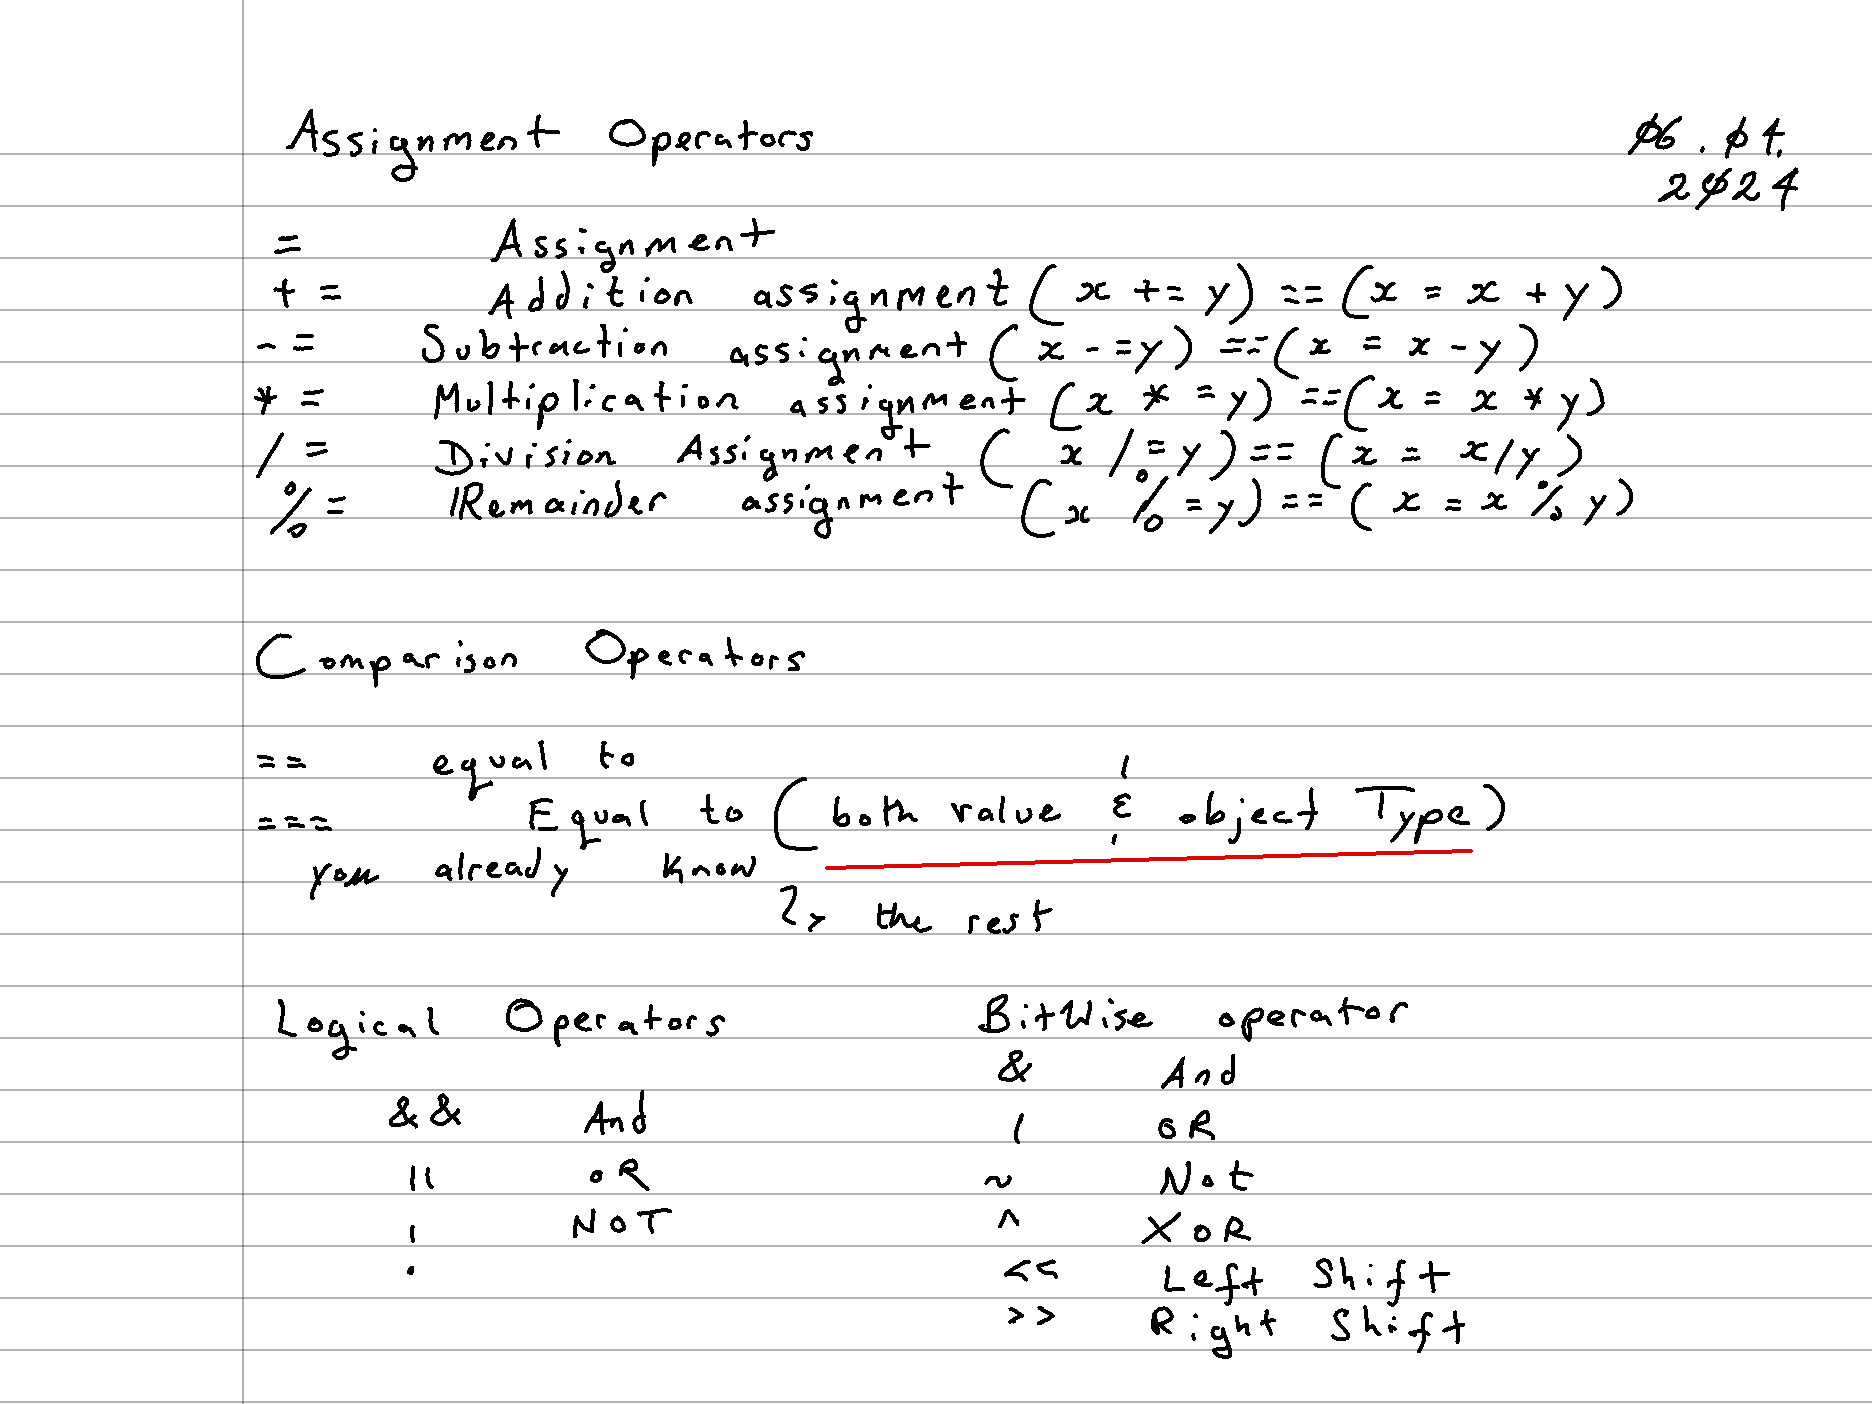 Assignment Operators
06.04.
2024
= Assignment
+= Addition assignment (x += y) == (x = x + y)
-= Subtraction assignment (x -= y) == (x = x - y)
*= Multiplication assignment (x *= y) == (x = x * y)
/= Division Assignment (x /= y) == (x = x/y)
%= Remainder assignment (x %= y) == (x = x % y)
Comparison Operators
== equal to
=== Equal to (both value & object Type)
you already know
the rest
Logical Operators
&& And
|| OR
! NOT
BitWise operator
& And
| OR
~ Not
^ XOR
<< Left Shift
>> Right Shift